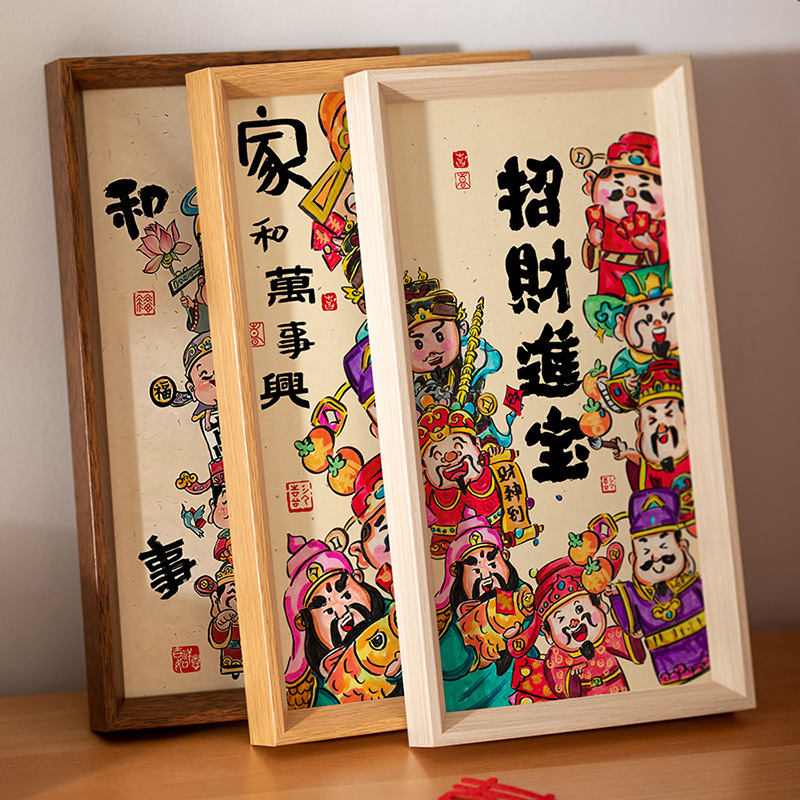 和
事
福
家
和
萬
事
興
招
財
進
宝
財神到